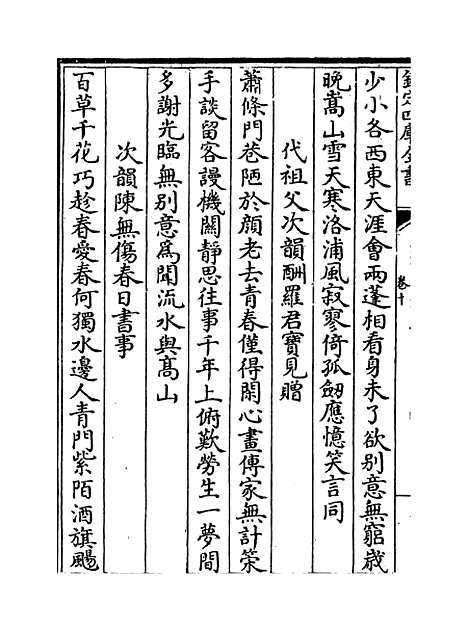 欽定四庫全書
卷十
少小各西東天涯會兩蓬相看身未了欲别意無窮歲
晩嵩山雪天寒洛浦風寂寥倚孤劔應憶笑言同
代祖父次韻酬羅君寶見贈
蕭條門巷陋於顔老去青春僅得閒心畫傳家無計策
手談留客謾機關静思往事千年上俯歎勞生一夢間
多謝光臨無别意爲聞流水與髙山
次韻陳無傷春日書事
百草千花巧趁春愛春何獨水邊人青門紫陌酒旗颺